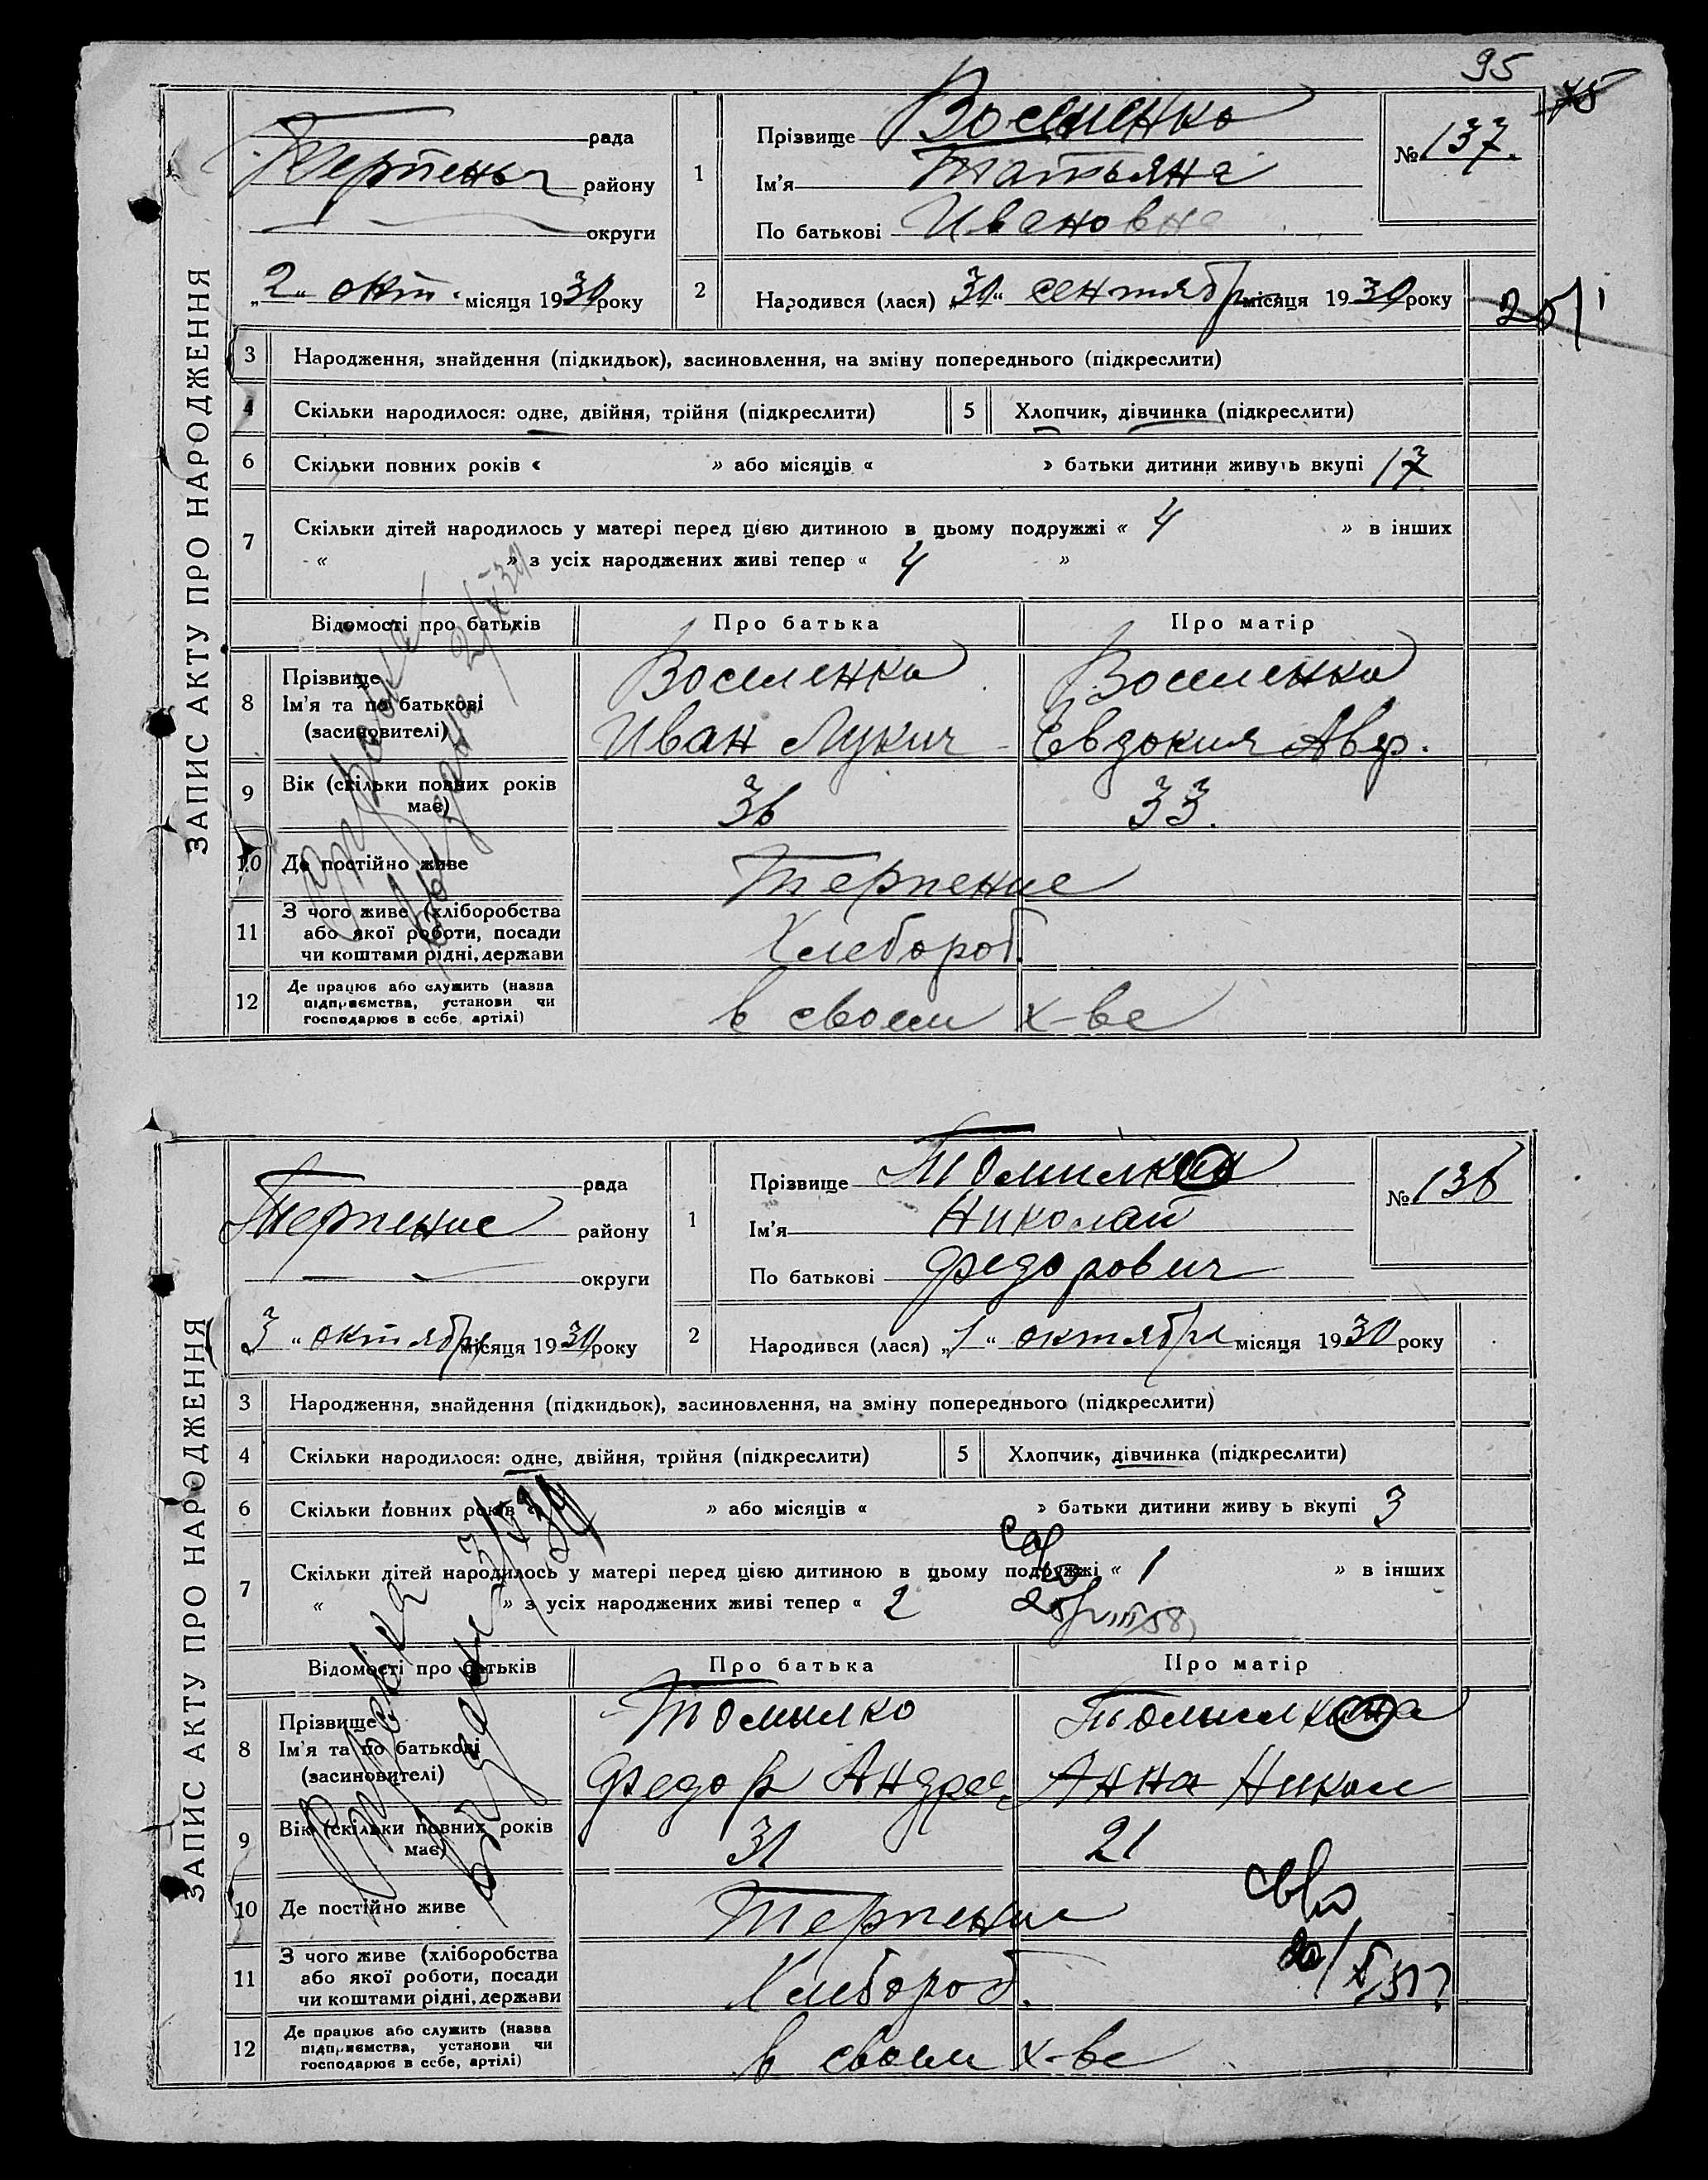 95
ЗАПИС АКТУ ПРО НАРОДЖЕННЯ
рада
району
округи
„2“ окт. місяця 1930 року
1
Прізвище
Ім'я Татьяна
По батькові Ивановна
№ 137.
2
Народився (лася) „30“ сентября місяця 1930 року
3 Народження, знайдення (підкидьок), засиновлення, на зміну попереднього (підкреслити)
4 Скільки народилося: одне, двійня, трійня (підкреслити)
5 Хлопчик, дівчинка (підкреслити)
6 Скільки повних років « » або місяців « » батьки дитини живуть вкупі 17
7 Скільки дітей народилось у матері перед цією дитиною в цьому подружжі « 4 » в інших
« » з усіх народжених живі тепер « 4 »
Відомості про батьків Про батька Про матір
8 Прізвище
Ім'я та по батькові
(засиновителі)
Иван Лукич
Евдокия Авер.
9 Вік (скільки повних років
має)
36
33.
10 Де постійно живе Терпение
11 З чого живе (хліборобства
або якої роботи, посади
чи коштами рідні, держави
Хлебороб.
12 Де працює або служить (назва
підприємства, установи чи
господарює в себе, артілі)
в своем х-ве
ЗАПИС АКТУ ПРО НАРОДЖЕННЯ
рада
Терпение району
округи
„3“ октября місяця 1930 року
1
Прізвище
Ім'я Николай
По батькові Федорович
№ 138
2
Народився (лася) „1“ октября місяця 1930 року
3 Народження, знайдення (підкидьок), засиновлення, на зміну попереднього (підкреслити)
4 Скільки народилося: одне, двійня, трійня (підкреслити)
5 Хлопчик, дівчинка (підкреслити)
6 Скільки повних років « » або місяців « » батьки дитини живу ь вкупі 3
7 Скільки дітей народилось у матері перед цією дитиною в цьому подружжі « 1 » в інших
« » з усіх народжених живі тепер « 2
Відомості про батьків Про батька Про матір
8 Прізвище
Ім'я та по батькові
(засиновителі)
Томилко
Федор Андрее
Анна Никол
9 Вік (скільки повних років
має)
31
21
10 Де постійно живе Терпение
11 З чого живе (хліборобства
або якої роботи, посади
чи коштами рідні, держави
Хлебороб.
12 Де працює або служить (назва
підприємства, установи чи
господарює в себе, артілі)
в своем х-ве